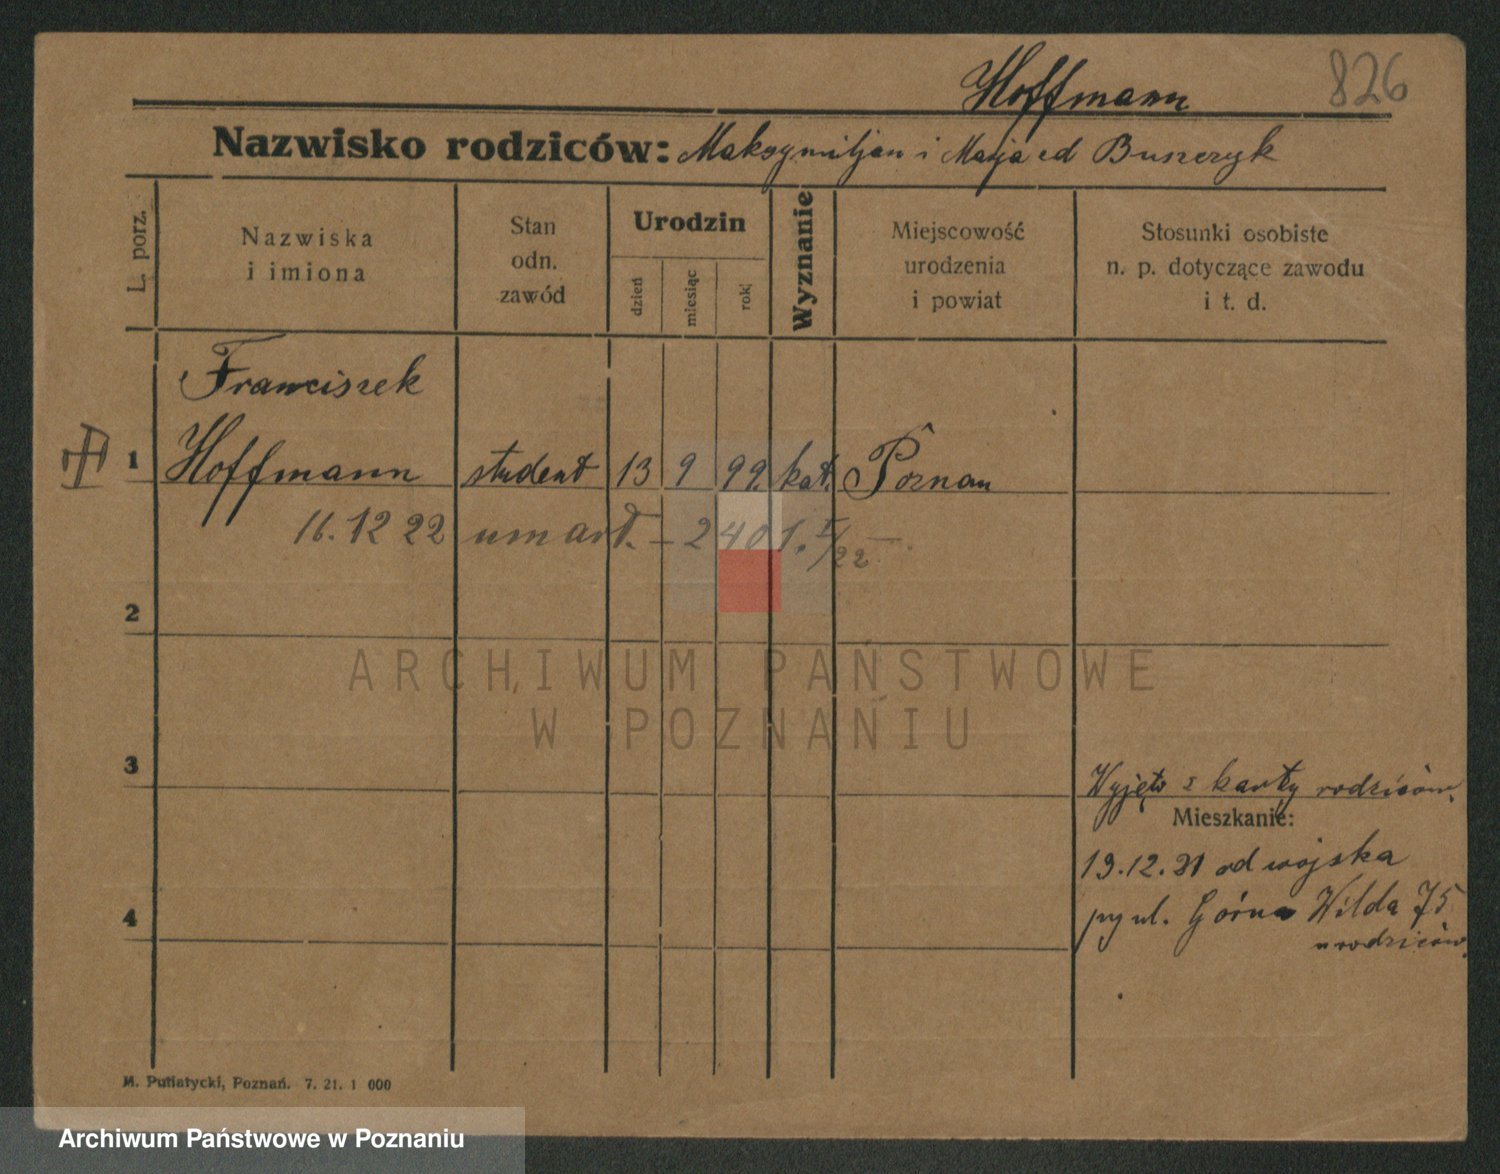 Hoffmann 826
Nazwisko rodziców: Maksymiljan i Marja ed Buszczyk
L. porz.
Nazwiska
i imiona
Stan
odn.
zawód
Urodzin
dzień
miesiąc
rok
Wyznanie
Miejscowość
urodzenia
i powiat
Stosunki osobiste
n. p. dotyczące zawodu
i t. d.
Franciszek
1 Hoffmann student 13 9 99. kat. Poznań
16.12 22 umarł. – 2401. I/22
2
ARCHIWUM PAŃSTWOWE
W POZNANIU
3
Wyjęto z karty rodziców.
Mieszkanie:
19.12.21 od wojska
4
ul. Górna Wilda 75
u rodziców.
M. Putiatycki, Poznań. 7. 21. 1 000
Archiwum Państwowe w Poznaniu